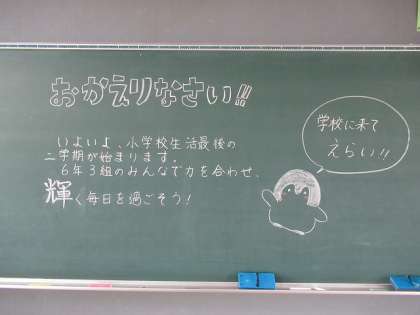 おかえりなさい!!
いよいよ、小学校生活最後の
二学期が始まります。
6年3組のみんなで力を合わせ、
輝く毎日を過ごそう!
学校に来て
えらい!!